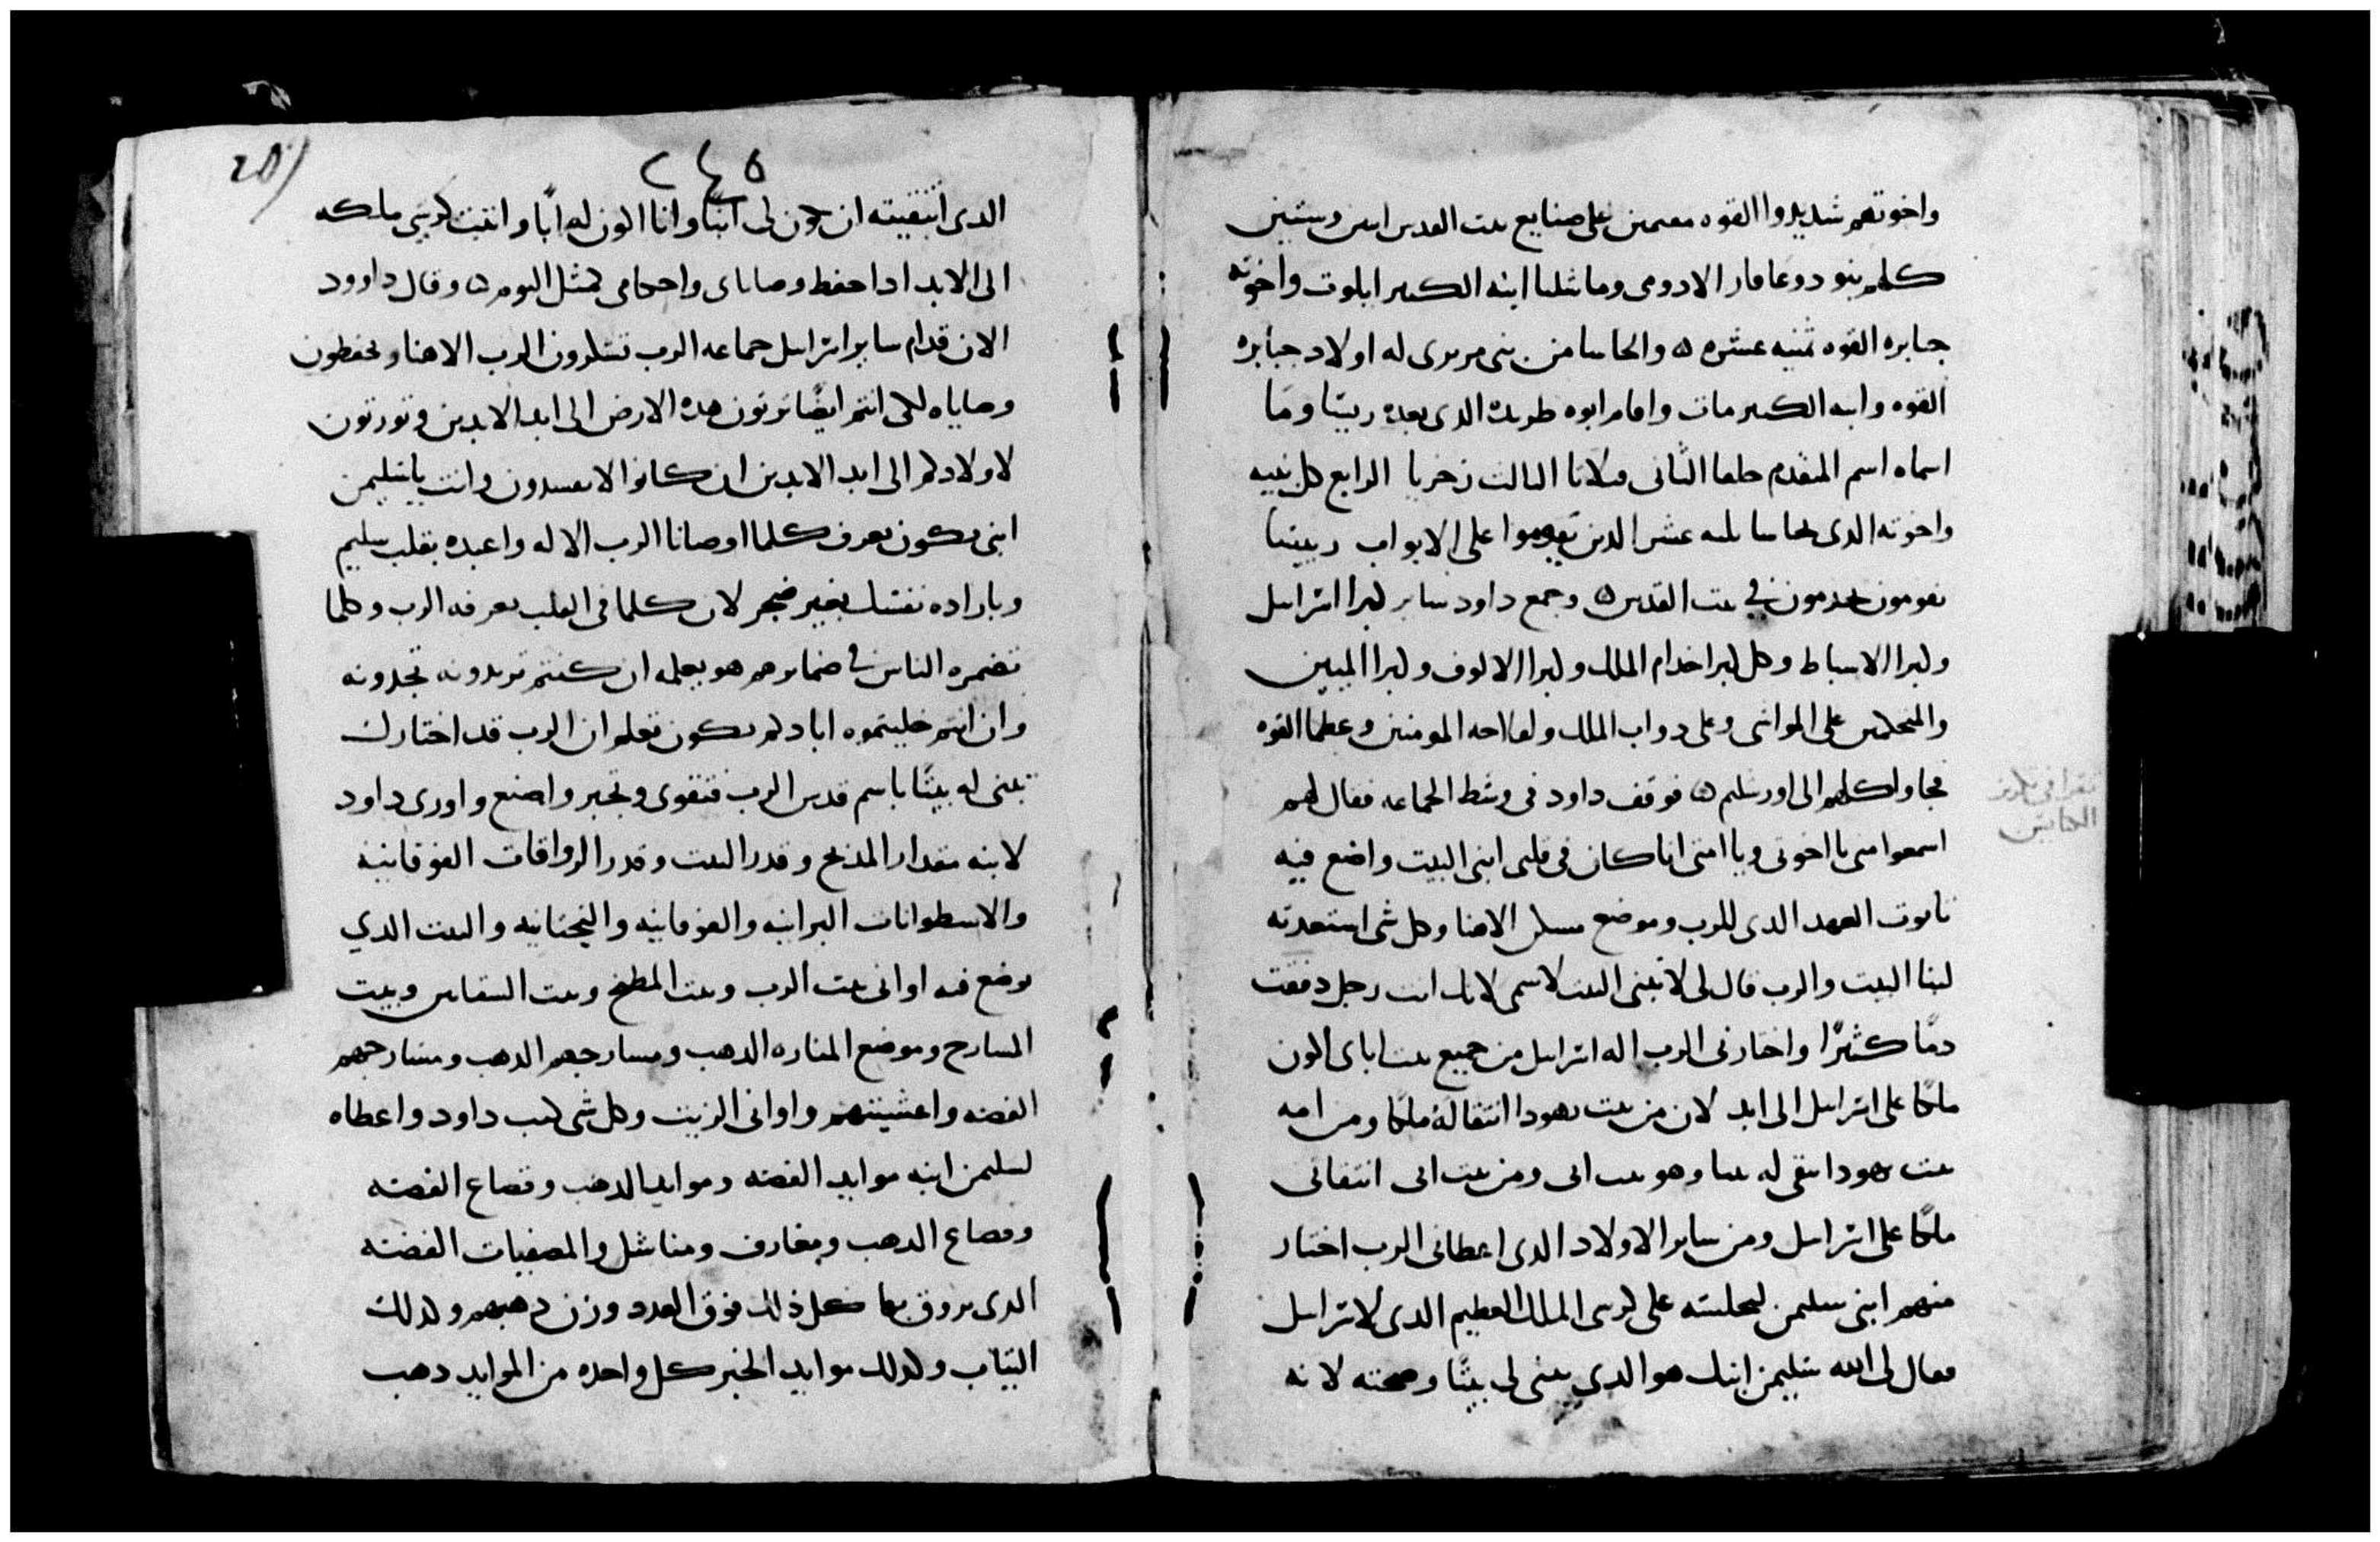 واخوتهم شديدوا القوه مقيمين على صنايع بيت القدس اثنين وستين
كلهم بنو دوعاقار الادومى وماشلما ابنه الكبير ابلوت واخوته
جبابره القوه ثمنيه عشره ۵ والحاسا من بنى مررى له اولاد جبابره
القوه وابنه الكبير مات واقام ابوه طريده الذى بعده ريسا وما
اسماه اسم المتقدم حلفا الثانى وبلاثا الثالث زخريا الرابع كل بنيه
واخوته الدى لحاسا ثلثه عشر الدين يقوموا على الابواب ريسا
يقومون يخدمون فى بيت القدس ۵ وجمع داود ساير كبرا اسراييل
وكبرا الاسباط وكل كبرا خدام الملك وكبرا الالوف وكبرا الميين
والمتكلمين على المواشى وعلى دواب الملك ولفلاحه المومنين وعظما القوه
فجاوا كلهم الى اورشليم ۵ فوقف داود فى وسط الجماعه فقال لهم
اسمعوا منى يا اخوتى ويا امتى انا كان فى قلبى ابنى البيت واضع فيه
تابوت العهد الدى للرب وموضع مسكن الاهنا وكل شى استعدته
لبنا البيت والرب قال لى لا تبنى البيت لاسمى لانك انت رجل دفقت
دمًا كثيرًا واختارنى الرب اله اسراييل من جميع بيت اباى اكون
ملكًا على اسراييل الى ابد لان من بيت يهودا انتقا له ملكًا ومن امه
بيت يهودا انتقى له بيتا وهو بيت ابى ومن بيت ابى انتقانى
ملكًا على اسراييل ومن ساير الاولاد الدى اعطانى الرب اختار
منهم ابنى سليمن ليجلسه على كرسى الملك العظيم الدى لاسراييل
فقال لى الله سليمن ابنك هو الدى يبنى لى بيتًا وصحنه لانه
تقرا فى تكريز
الكنايس
۲٤۵
201
الدى انتقيته ان يكون لى ابنًا وانا اكون له ابًا واثبت كرسى ملكه
الى الابد ادا حفظ وصاياى واحكامى كمثل اليوم ۵ وقال داوود
الان قدام ساير اسراييل جماعه الرب تشكرون الرب الاهنا وتحفظون
وصاياه لكى انتم ايضًا ترتون هده الارض الى ابد الابدين وتورتون
لاولادكم الى ابد الابدين ان كانوا لا يفسدون وانت يا سليمن
ابنى يكون تعرف كلما اوصانا الرب الاله واعبده بقلب سليم
وباراده نفسك بغير ضجر لان كلما فى القلب يعرفه الرب وكلما
تضمره الناس فى ضمايرهم هو يعلمه ان كنتم تريدونه تجدونه
وان انتم خليتموه ابادكم يكون تعلم ان الرب قد اختارك
تبنى له بيتًا باسم قدس الرب فتقوى وتجبر واصنع واورى داود
لابنه مقدار المذبح وقدر البيت وقدر الرواقات الفوقانيه
والاسطوانات البرانيه والفوقانيه والتحتانيه والبيت الدي
يوضع فيه اوانى بيت الرب وبيت المطبخ وبيت النفايس وبيت
المسارج وموضع المناره الدهب ومسارجهم الدهب ومسارجهم
الفضه واغشيتهم واوانى الزيت وكل شى كتب داود واعطاه
لسليمن ابنه موايد الفضه وموايد الدهب وقصاع الفضه
وقصاع الدهب ومغارف ومناشل والمصفيات الفضه
الدى يروق بها كل ذلك فوق العدد وزن دهبهم وكدلك
التياب وكدلك موايد الخبز كل واحده من الموايد دهب